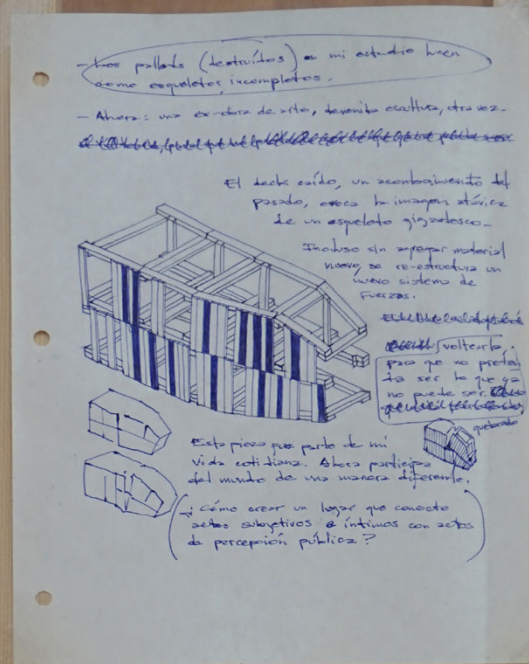 - Los pallets (destruídos) en mi estudio lucen
como esqueletos incompletos.
- Ahora: una ex-obra de arte, devenida escultura, otra vez.
El deck caído, un acontecimiento del
pasado, evoca la imagen atávica
de un esqueleto gigantesco_
Incluso sin agregar material
nuevo, se re-estructura un
nuevo sistema de
fuerzas.
voltearla
para que no preten
da ser lo que ya
no puede ser.
quebrado
Esta pieza fue parte de mi
vida cotidiana. Ahora participa
del mundo de una manera diferente.
¿Cómo crear un lugar que conecte
actos subjetivos e íntimos con actos
de percepción pública?